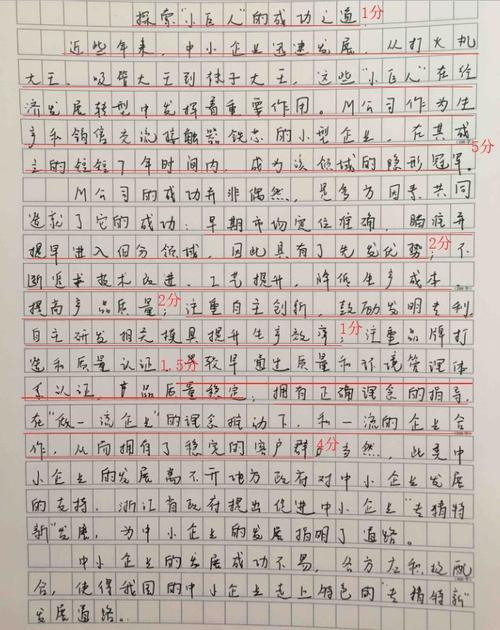 探索“小巨人”的成功之道1分
近些年来，中小企业迅速发展，从打火机
大王、吸管大王到袜子大王，这些“小巨人”在经
济发展转型中发挥着重要作用。M公司作为生
产和销售交流接触器铁芯的小型企业，在其成
立的短短7年时间内，成为该领域的隐形冠军。5分
M公司的成功并非偶然，是多方因素共同
造就了它的成功：早期市场定位准确，瞄准并
提早进入细分领域，因此具有了先发优势；2分不
断追求技术改进、工艺提升，降低生产成本
提高产品质量；2分注重自主创新，鼓励发明专利，
自主研发相关模具提升生产效率；1分注重品牌打
造和质量认证1.5分较早通过质量和环境管理体
系认证，产品质量稳定；拥有正确理念的指导，
在“放一流企业”的理念推动下，和一流的企业合
作，从而拥有了稳定的客户群。4分当然，此类中
小企业的发展离不开地方政府对中小企业发展
的支持，浙江省政府提出促进中小企业“专精特
新”发展，为中小企业的发展指明了道路。
中小企业的发展成功不易，各方左积极配
合，使得我国的中小企业走上特色的“专精特新”
发展道路。